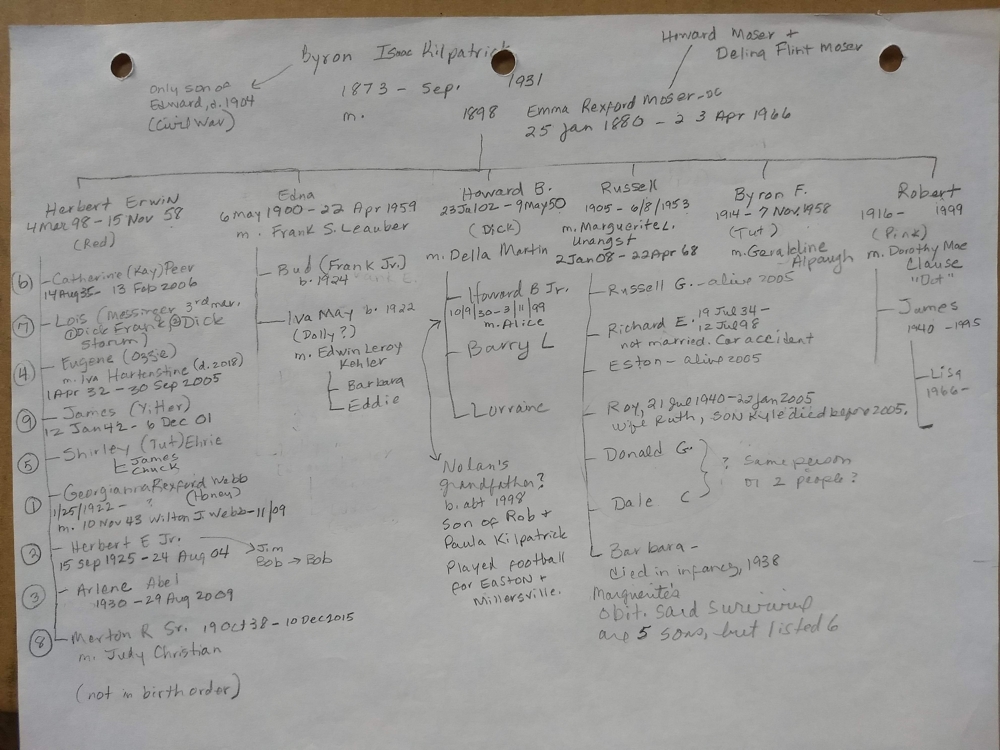 Howard Moser +
Delina Flint Moser
Byron Isaac Kilpatrick
only son of
Edward, d. 1904
(Civil War)
1873 - Sep. 1931
m. 1898 Emma Rexford Moser
25 Jan 1880 - 23 Apr 1966
Herbert Erwin
4 Mar 98 - 15 Nov 58
(Red)
(6) Catharine (Kay) Peer
14 Aug 35 - 13 Feb 2006
(7) Lois (Messinger 3rd mar.
① Dick Frank, ② Dick
Storum)
(4) Eugene (Ozzie)
m. Iva Hartenstine (d. 2018)
1 Apr 32 - 30 Sep 2005
(9) James (Yitter)
12 Jan 42 - 6 Dec 01
(5) Shirley (Tut) Ehrie
James
Chuck
(1) Georgianna Rexford Webb
1/25/1922 - ? (Honey)
m. 10 Nov 43 Wilton J. Webb - 11/09
(2) Herbert E Jr.
15 Sep 1925 - 24 Aug 04
Jim
Bob → Bob
(3) Arlene Abel
1930 - 29 Aug 2009
(8) Merton R Sr. 19 Oct 38 - 10 Dec 2015
m. Judy Christian
(not in birth order)
Edna
6 May 1900 - 22 Apr 1959
m. Frank S. Leauber
Bud (Frank Jr.)
b. 1924
Iva May b. 1922
(Dolly?)
m. Edwin Leroy
Kehler
Barbara
Eddie
Howard B.
23 Jul 02 - 9 May 50
(Dick)
m. Della Martin
Howard B Jr.
10/9/30 - 3/11/99
m. Alice
Barry L
Lorraine
Nolan's
grandfather?
b. abt 1998
Son of Rob +
Paula Kilpatrick
Played football
for Easton +
Millersville.
Russell
1905 - 6/8/1953
m. Marguerite L.
Unangst
2 Jan 08 - 22 Apr 68
Russell G. - alive 2005
Richard E. 19 Jul 34 -
12 Jul 98
not married. Car accident
Eston - alive 2005
Roy, 21 Jul 1940 - 22 Jan 2005
wife Ruth, son Kyle died before 2005.
Donald G.
Dale C
? Same person
or 2 people?
Barbara -
died in infancy, 1938
Marguerite's
obit. said surviving
are 5 sons, but listed 6
Byron F.
1914 - 7 Nov. 1958
(Tut)
m. Geraldine
Alpaugh
Robert
1916 - 1999
(Pink)
m. Dorothy Mae
Clause
"Dot"
James
1940 - 1995
Lisa
1966 -